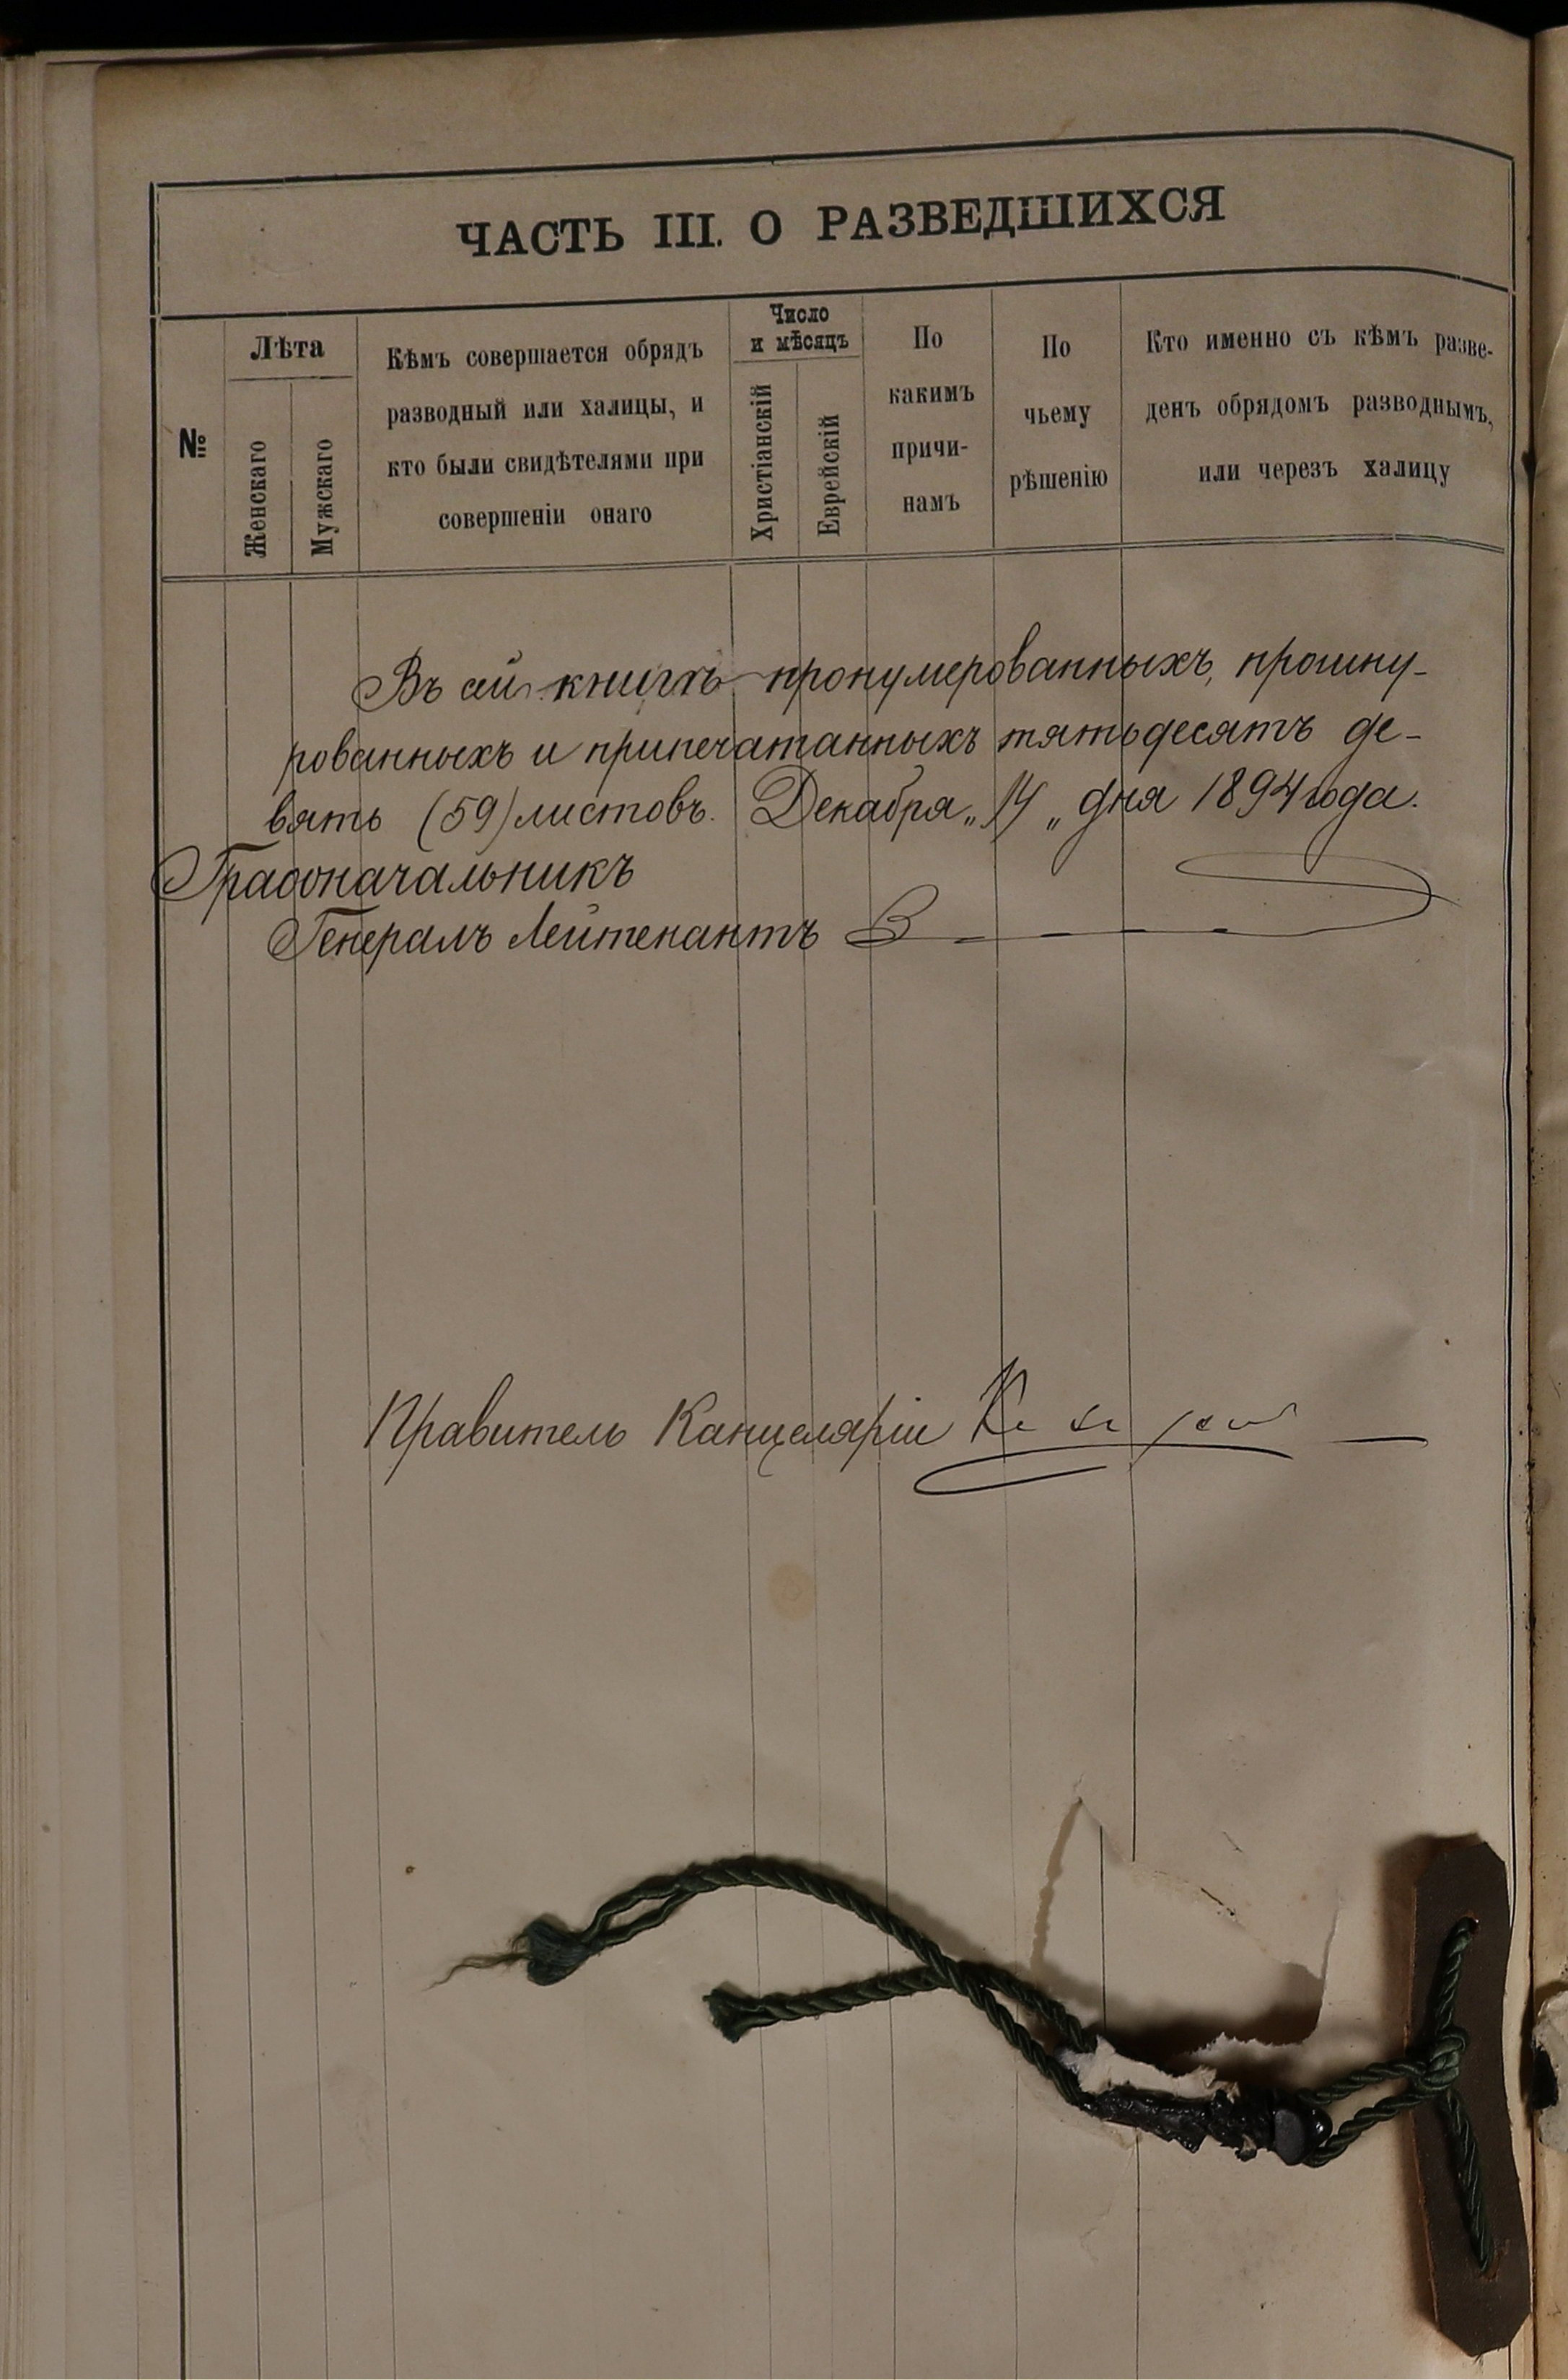 ЧАСТЬ III. О РАЗВЕДШИХСЯ
№
Лѣта
Женскаго
Мужскаго
Кѣмъ совершается обрядъ
разводный или халицы, и
кто были свидѣтелями при
совершеніи онаго
Число
и мѣсяцъ
Христіанскій
Еврейскій
По
какимъ
причи-
намъ
По
чьему
рѣшенію
Кто именно съ кѣмъ разве-
денъ обрядомъ разводнымъ,
или черезъ халицу
Въ сей книгѣ пронумерованныхъ, прошну-
рованныхъ и припечатанныхъ пятьдесятъ де-
вять (59) листовъ. Декабря „14„ дня 1894 года.
Градоначальникъ
Генералъ Лейтенантъ
Правитель Канцеляріи